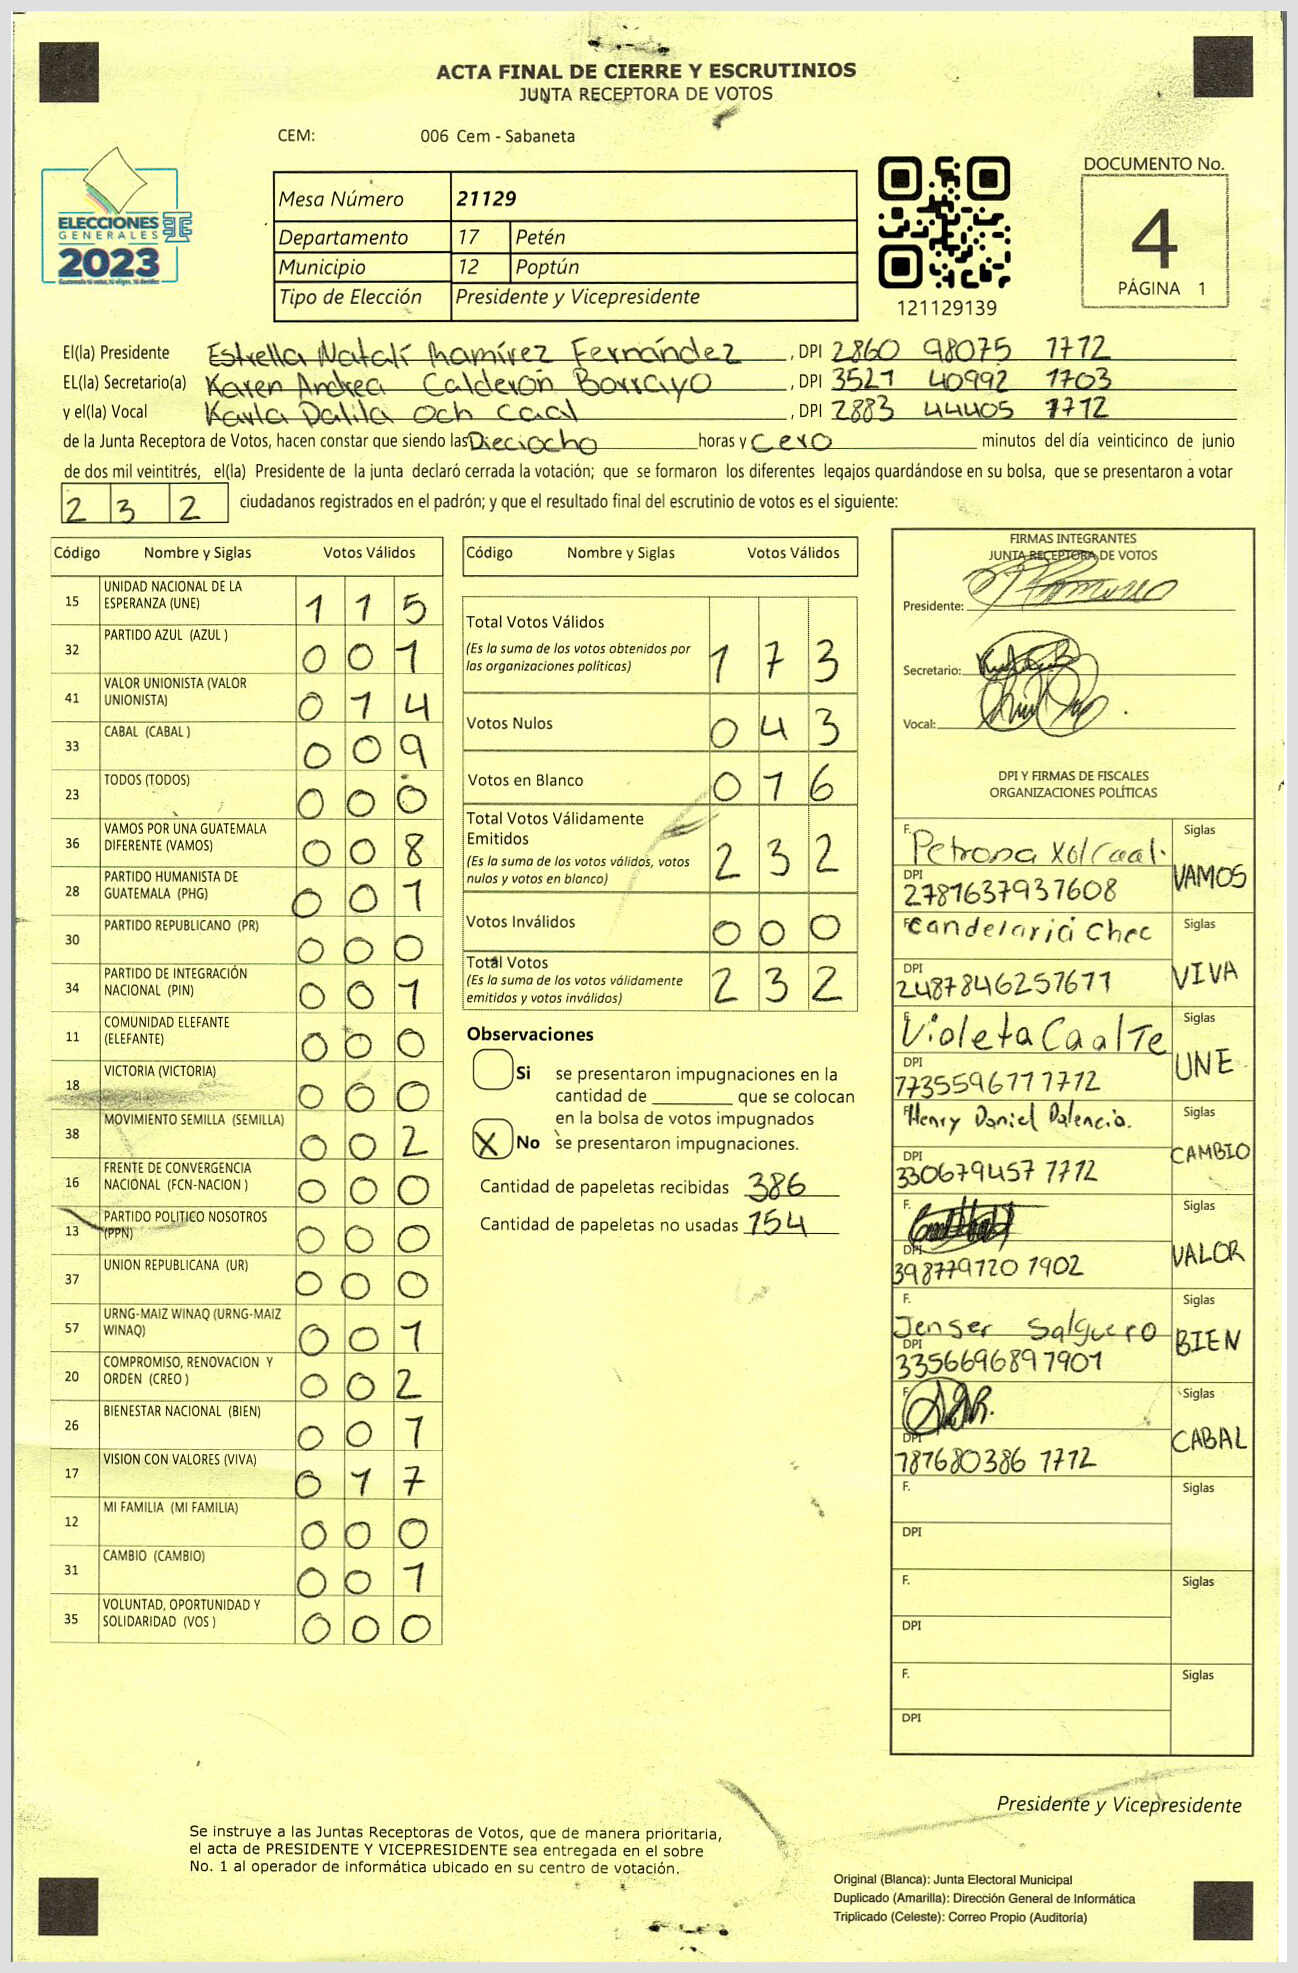 ACTA FINAL DE CIERRE Y ESCRUTINIOS
JUNTA RECEPTORA DE VOTOS
CEM: 006 Cem - Sabaneta
ELECCIONES
GENERALES
2023
Mesa Número 21129
Departamento 17 Petén
Municipio 12 Poptún
Tipo de Elección Presidente y Vicepresidente
121129139
DOCUMENTO No.
4
PÁGINA 1
El(la) Presidente Estrella Natalí Ramírez Fernández, DPI 2860 98075 1712
EL(la) Secretario(a) Karen Andrea Calderón Borrayo, DPI 3521 40992 1703
y el(la) Vocal Karla Dalila Och Caal, DPI 2883 44405 1712
de la Junta Receptora de Votos, hacen constar que siendo las Dieciocho horas y cero minutos del día veinticinco de junio
de dos mil veintitrés, el(la) Presidente de la junta declaró cerrada la votación; que se formaron los diferentes legajos quardándose en su bolsa, que se presentaron a votar
2 3 2 ciudadanos registrados en el padrón; y que el resultado final del escrutinio de votos es el siguiente:
Código Nombre y Siglas Votos Válidos
15 UNIDAD NACIONAL DE LA
ESPERANZA (UNE) 1 1 5
32 PARTIDO AZUL (AZUL ) 0 0 1
41 VALOR UNIONISTA (VALOR
UNIONISTA) 0 1 4
33 CABAL (CABAL ) 0 0 9
23 TODOS (TODOS) 0 0 0
36 VAMOS POR UNA GUATEMALA
DIFERENTE (VAMOS) 0 0 8
28 PARTIDO HUMANISTA DE
GUATEMALA (PHG) 0 0 1
30 PARTIDO REPUBLICANO (PR) 0 0 0
34 PARTIDO DE INTEGRACIÓN
NACIONAL (PIN) 0 0 1
11 COMUNIDAD ELEFANTE
(ELEFANTE) 0 0 0
18 VICTORIA (VICTORIA) 0 0 0
38 MOVIMIENTO SEMILLA (SEMILLA) 0 0 2
16 FRENTE DE CONVERGENCIA
NACIONAL (FCN-NACION ) 0 0 0
13 PARTIDO POLITICO NOSOTROS
(PPN) 0 0 0
37 UNION REPUBLICANA (UR) 0 0 0
57 URNG-MAIZ WINAQ (URNG-MAIZ
WINAQ) 0 0 1
20 COMPROMISO, RENOVACION Y
ORDEN (CREO ) 0 0 2
26 BIENESTAR NACIONAL (BIEN) 0 0 1
17 VISION CON VALORES (VIVA) 0 1 7
12 MI FAMILIA (MI FAMILIA) 0 0 0
31 CAMBIO (CAMBIO) 0 0 1
35 VOLUNTAD, OPORTUNIDAD Y
SOLIDARIDAD (VOS ) 0 0 0
Código Nombre y Siglas Votos Válidos
Total Votos Válidos
(Es la suma de los votos obtenidos por
las organizaciones políticas) 1 7 3
Votos Nulos 0 4 3
Votos en Blanco 0 1 6
Total Votos Válidamente
Emitidos
(Es la suma de los votos válidos, votos
nulos y votos en blanco) 2 3 2
Votos Inválidos 0 0 0
Total Votos
(Es la suma de los votos válidamente
emitidos y votos inválidos) 2 3 2
Observaciones
Si se presentaron impugnaciones en la
cantidad de ________ que se colocan
en la bolsa de votos impugnados
X No se presentaron impugnaciones.
Cantidad de papeletas recibidas 386
Cantidad de papeletas no usadas 154
FIRMAS INTEGRANTES
JUNTA RECEPTORA DE VOTOS
Presidente:
Secretario:
Vocal:
DPI Y FIRMAS DE FISCALES
ORGANIZACIONES POLÍTICAS
F. Petrona Xol Caal. Siglas
DPI 2781637937608 VAMOS
F. Candelaria Chec Siglas
DPI 2487846257671 VIVA
F. Violeta Caal Te Siglas
DPI 1735596771712 UNE
F. Henry Daniel Palencia. Siglas
DPI 330679457 1712 CAMBIO
F. Siglas
DPI 398779120 1902 VALOR
F. Jenser Salguero Siglas
DPI 3356696897901 BIEN
F. Siglas
DPI 187680386 1712 CABAL
F. Siglas
DPI
F. Siglas
DPI
F. Siglas
DPI
Presidente y Vicepresidente
Se instruye a las Juntas Receptoras de Votos, que de manera prioritaria,
el acta de PRESIDENTE Y VICEPRESIDENTE sea entregada en el sobre
No. 1 al operador de informática ubicado en su centro de votación.
Original (Blanca): Junta Electoral Municipal
Duplicado (Amarilla): Dirección General de Informática
Triplicado (Celeste): Correo Propio (Auditoría)